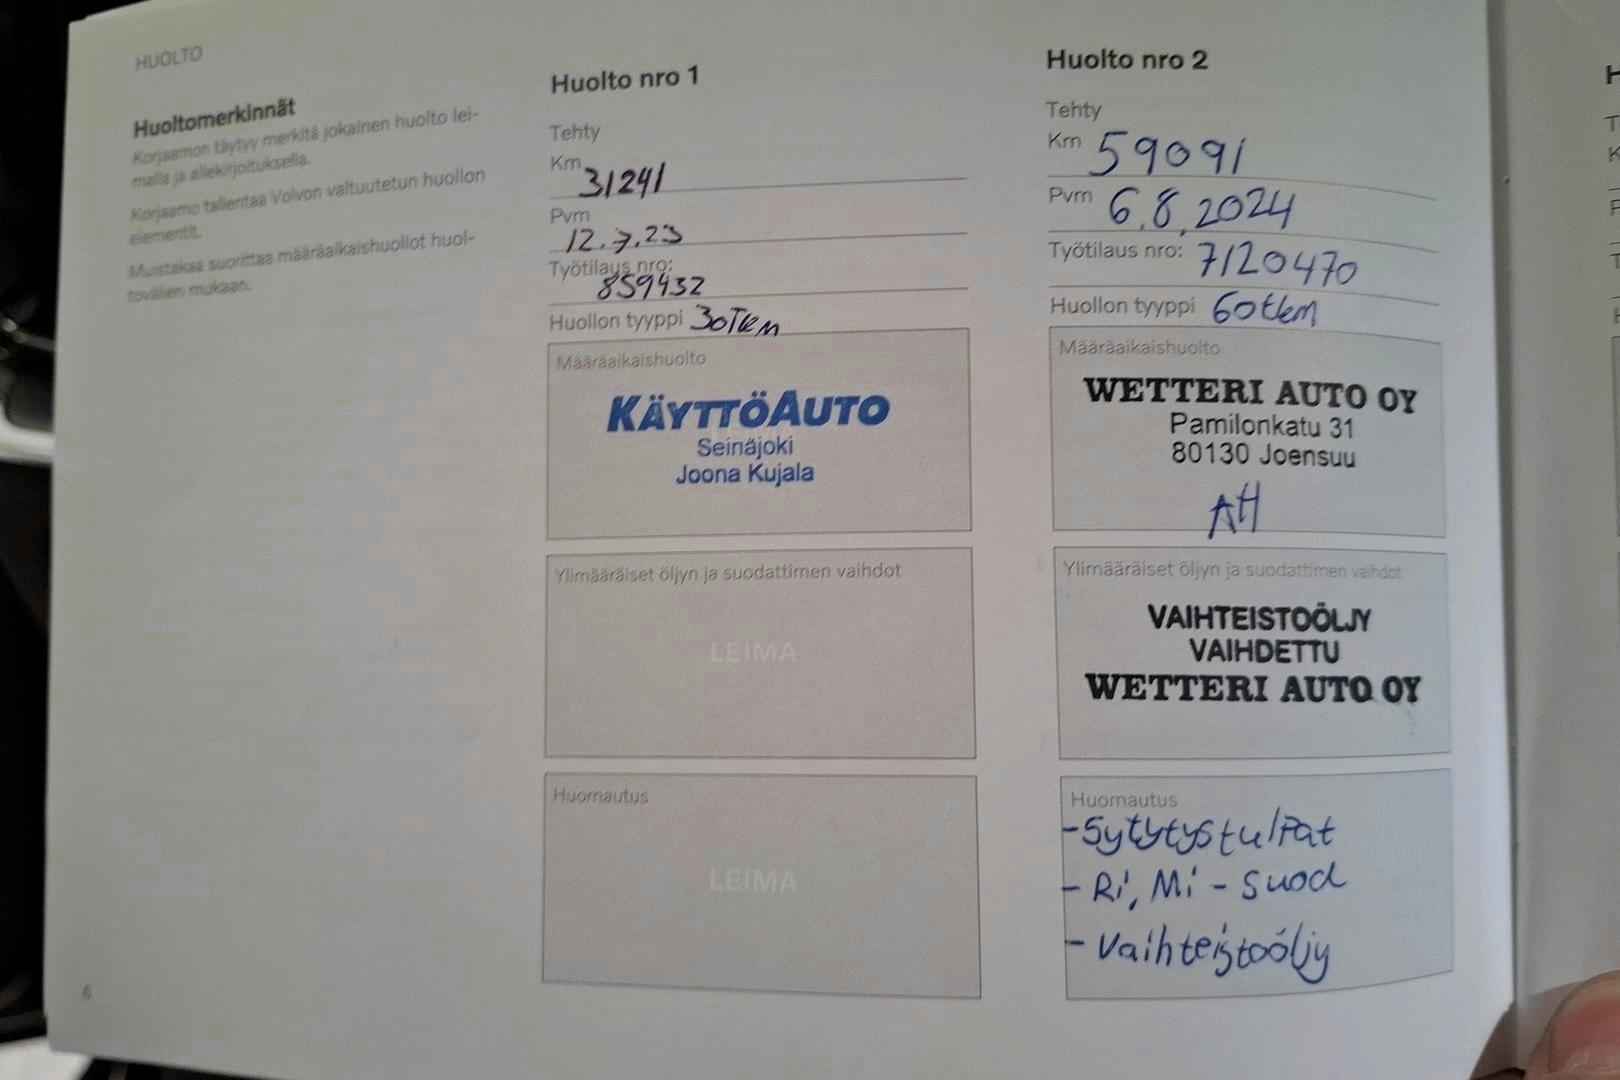 HUOLTO
Huoltomerkinnät
Korjaamon täytyy merkitä jokainen huolto lei-
malla ja allekirjoituksella.
Korjaamo tallentaa Volvon valtuutetun huollon
elementit.
Muistakaa suorittaa määräaikaishuollot huol-
tovälien mukaan.
6
Huolto nro 1
Tehty
Km 31241
Pvm
12.7.23
Työtilaus nro:
859432
Huollon tyyppi 30Tkm
Määräaikaishuolto
KÄYTTÖAUTO
Seinäjoki
Joona Kujala
Ylimääräiset öljyn ja suodattimen vaihdot
LEIMA
Huomautus
LEIMA
Huolto nro 2
Tehty
Km 59091
Pvm 6.8.2024
Työtilaus nro: 7120470
Huollon tyyppi 60tkm
Määräaikaishuolto
WETTERI AUTO OY
Pamilonkatu 31
80130 Joensuu
AH
Ylimääräiset öljyn ja suodattimen vaihdot
VAIHTEISTOÖLJY
VAIHDETTU
WETTERI AUTO OY
Huomautus
- Sytytystulpat
- Ri, Mi - suod
- Vaihteistoöljy